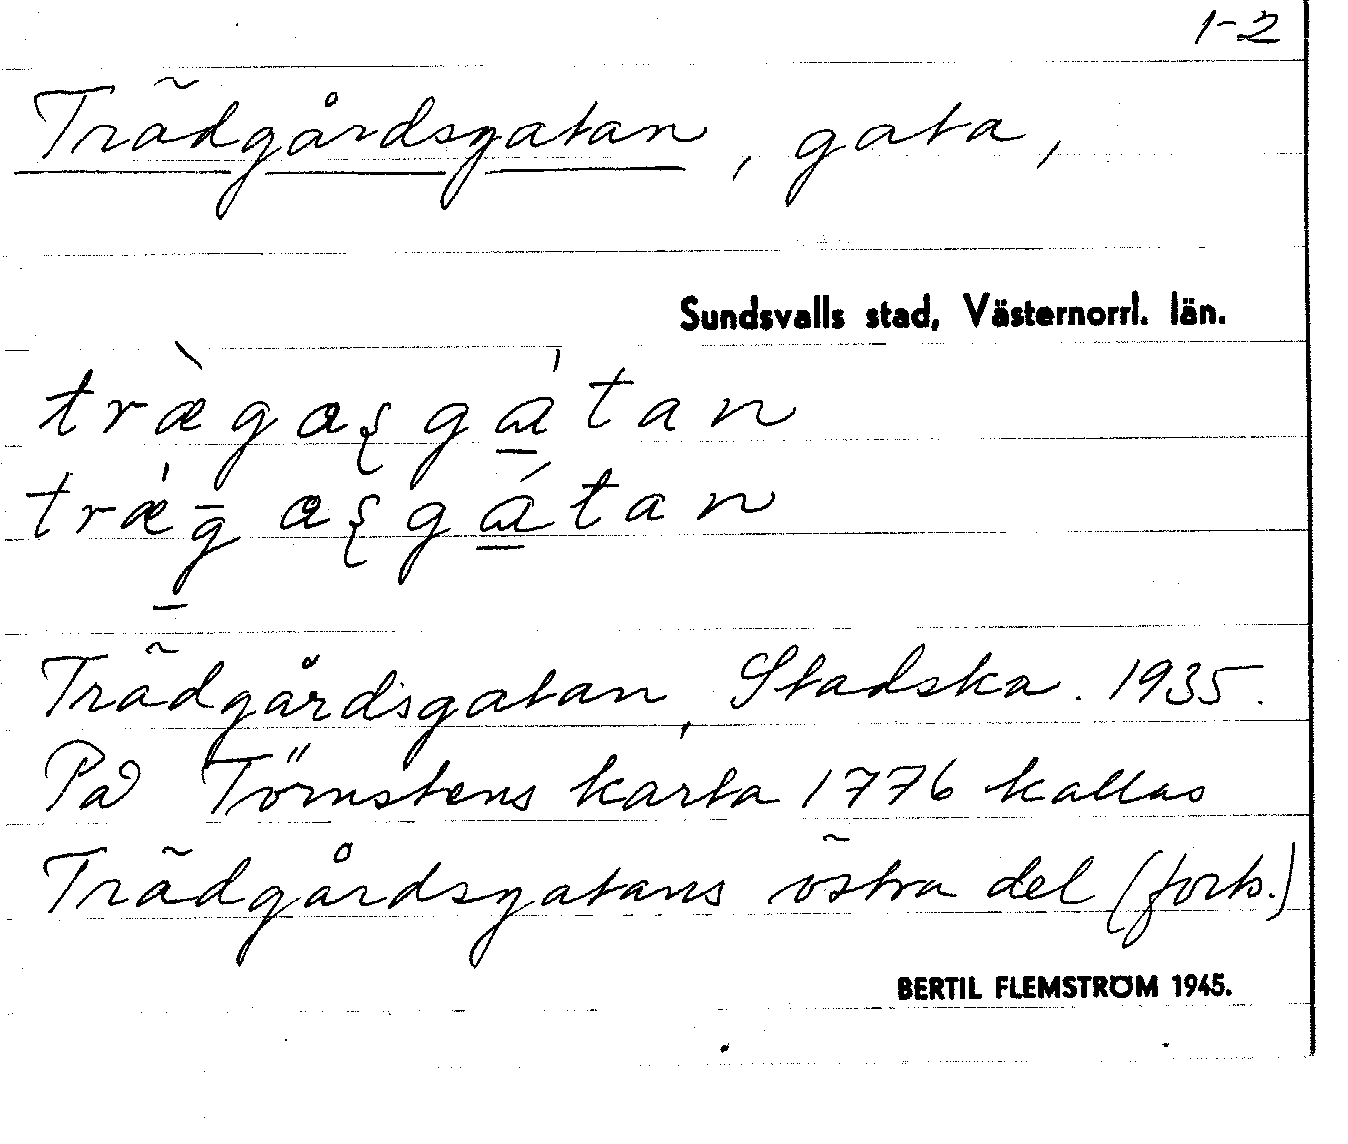 1-2
Trädgårdsgatan, gata,
Sundsvalls stad, Västernorrl. län.
træ̀gaʂga̱̍tan
træ̍g̱aʂgá̱tan
Trädgårdsgatan, Stadska. 1935.
På Törnstens karta 1776 kallas
Trädgårdsgatans östra del (forts.)
BERTIL FLEMSTRÖM 1945.